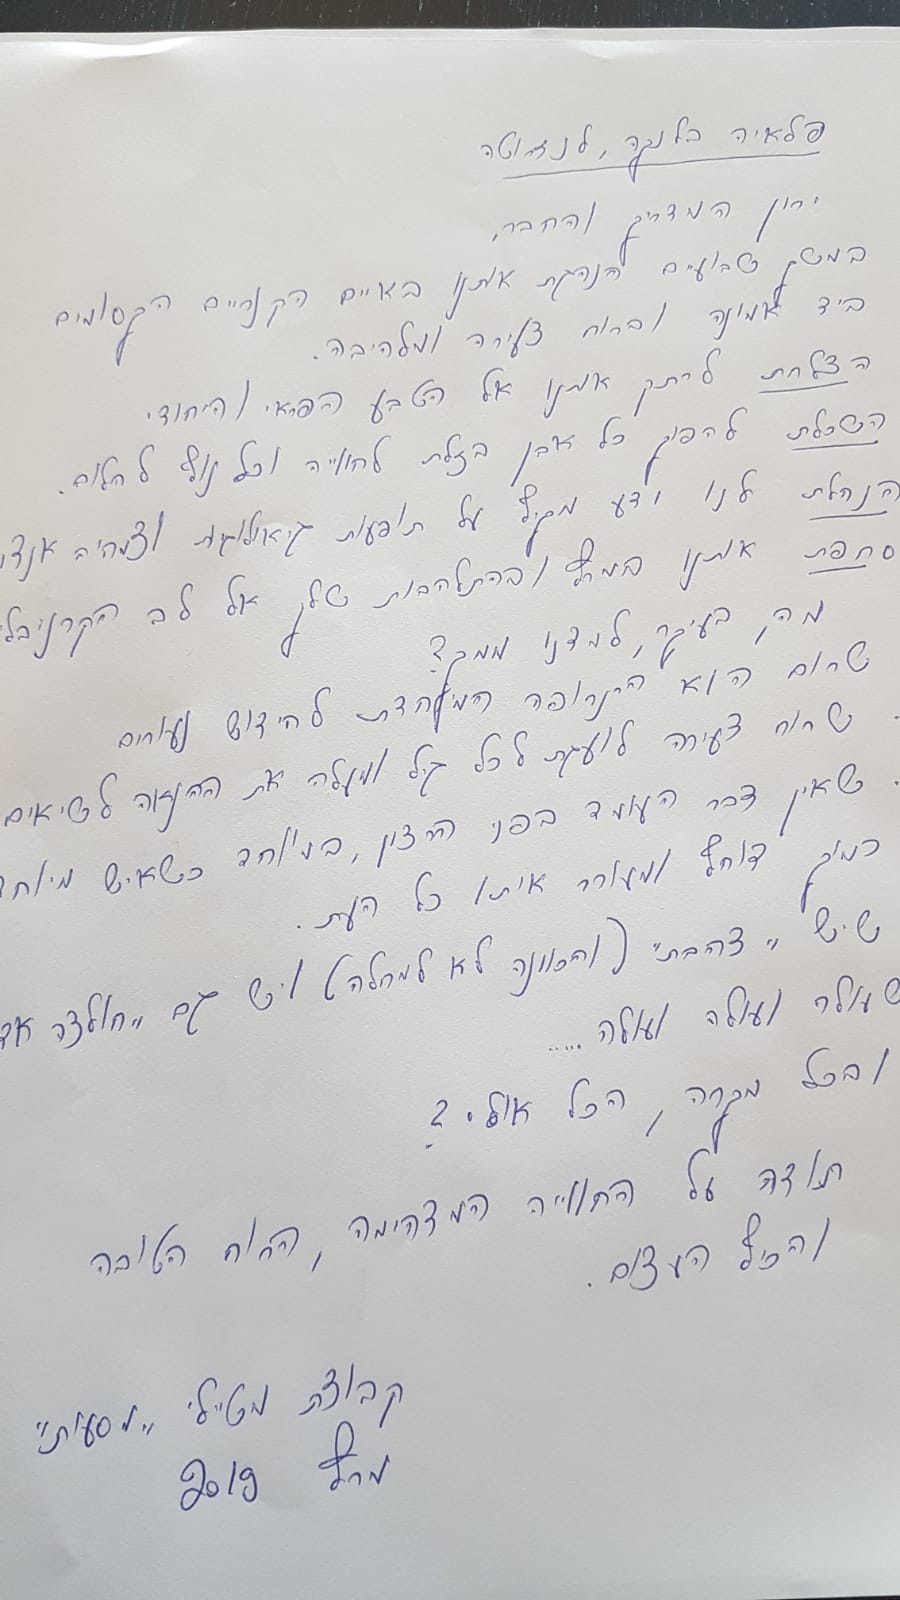 פלאיה בלנקה, לנזרוטה
ירון המדריך והחבר,
במשך שבועיים הנהגת אותנו באיים הקנריים הקסומים
ביד אמונה וברוח צעירה ומלהיבה.
הצלחת לרתק אותנו אל הטבע הפראי והיחודי
השכלת להפוך כל אבן בזלת לחווייה וכל נוף לחלום.
הנחלת לנו ידע מקיף על תופעות גיאולוגיות וצמחיה
סחפת אותנו במרץ ובהתלהבות שלך אל לב
מה, בעיקר, למדנו ממך?
שרום הוא התרופה המיוחדת לחידוש נעורים
שרוח צעירה לועגת לכל גיל ומעלה את ההנאה לשיאים
שאין דבר העומד בפני הרצון, במיוחד כשאיש
כמוך דוחף ומעורר איתו כל העת.
שיש "צהבת" (והכוונה לא למחלה) ויש גם "חולצה
שעולה ועולה ועולה.....
ובכל מקרה, הכל אולי?
תודה על החווייה המדהימה, הרוח הטובה
והכיף העצום.
קבוצת מטיילי "מסעות"
מרץ 2019